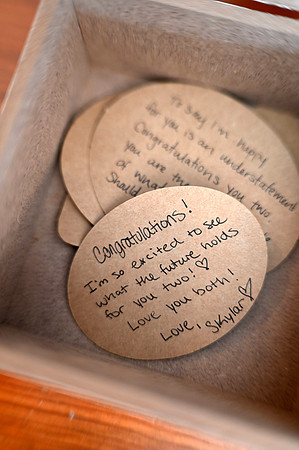 To say I'm happy
for you is an understatement
Congratulations you two.
you are the
or what
Should
Congratulations!
I'm so excited to see
what the future holds
for you two! ♡
Love you both!
Love, Skylar ♡